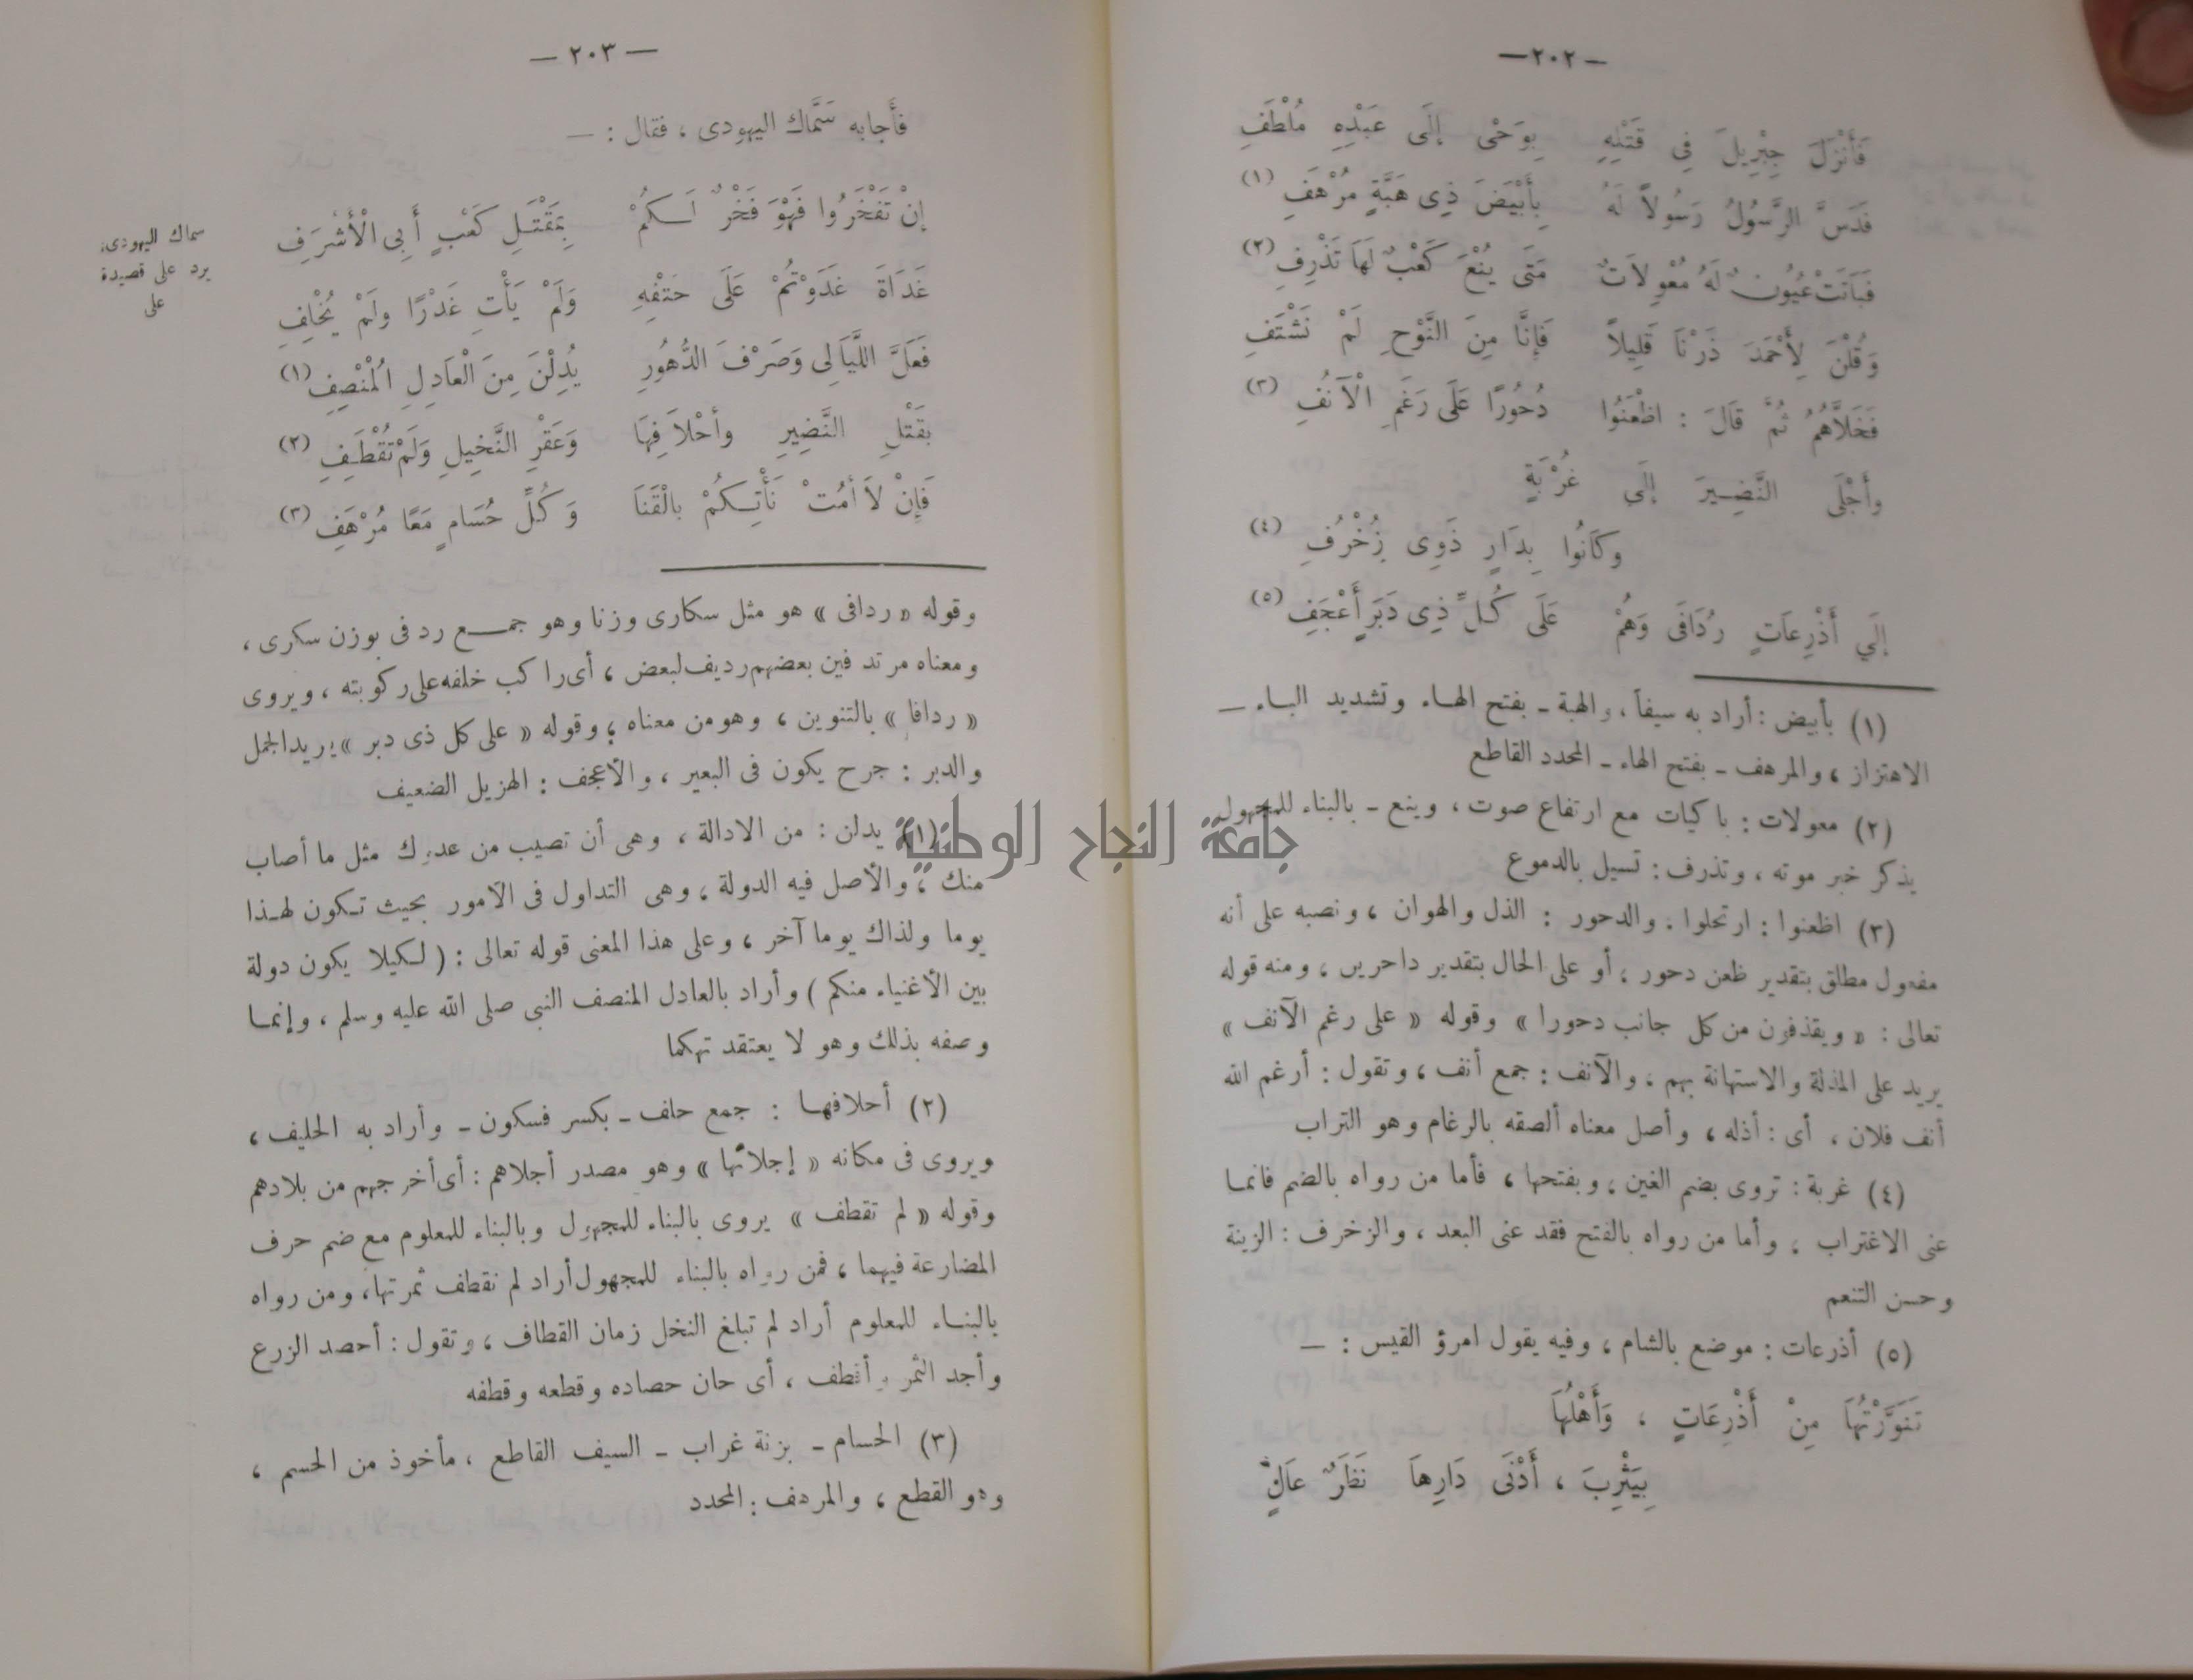 —٢٠٢—
فَأَنْزَلَ جِبْرِيلَ فِى قَتْلِهِ بِوَحْىٍ إلَى عَبْدِهِ مُلْطَفِ
فَدَسَّ الرَّسُولُ رَسُولاً لَهُ بِأَبْيَضَ ذِى هَبَّةٍ مُرْهَفِ (١)
فَبَاتَتْ عُيُونٌ لَهُ مُعْوِلاَتٌ مَتَى يُنْعَ كَعْبٌ لَهَا تَذْرِفِ (٢)
وَقُلْنَ لِأَحْمَدَ ذَرْنَا قَلِيلاً فَإِنَّا مِنَ النَّوْحِ لَمْ نَشْتَفِ
فَخَلاَّهُمُ ثُمَّ قَالَ : اظْعَنُوا دُحُورًا عَلَى رَغَمِ الْآنُفِ (٣)
وأجْلَى النَّضِيرَ إلَى غُرْبَةٍ
وكَانُوا بِدَارٍ ذَوِى زُخْرُفِ (٤)
إلَي أَذْرِعَاتٍ رُدَافَى وَهُمْ عَلَى كُلِّ ذِى دَبَرٍ أَعْجَفِ (٥)
(١) بأبيض : أراد به سيفاً ، والهبة ـ بفتح الهاء وتشديد الباء ـ
الاهتزاز ، والمرهف ـ بفتح الهاء ـ المحدد القاطع
(٢) معولات : باكيات مع ارتفاع صوت ، وينع ـ بالبناء للمجهول
يذكر خبر موته ، وتذرف : تسيل بالدموع
(٣) اظعنوا : ارتحلوا . والدحور : الذل والهوان ، ونصبه على أنه
مفعول مطلق بتقدير ظعن دحور ، أو على الحال بتقدير داحرين ، ومنه قوله
تعالى : « ويقذفون من كل جانب دحورا » وقوله « على رغم الآنف »
يريد على المذلة والاستهانة بهم ، والآنف : جمع أنف ، وتقول : أرغم الله
أنف فلان ، أى : أذله ، وأصل معناه ألصقه بالرغام وهو التراب
(٤) غربة : تروى بضم الغين ، وبفتحها ، فأما من رواه بالضم فانما
عنى الاغتراب ، وأما من رواه بالفتح فقد عنى البعد ، والزخرف : الزينة
وحسن التنعم
(٥) أذرعات : موضع بالشام ، وفيه يقول امرؤ القيس : ـ
تَنَوَّرْتُهَا مِنْ أَذْرِعَاتٍ ، وَأَهْلُهَا
بِيَثْرِبَ ، أَدْنَى دَارِهَا نَظَرٌ عَالٍ
— ٢٠٣ —
فأجابه سَمَّاك اليهودى ، فقال : ـ
إنْ تَفْخَرُوا فَهْوَ فَخْرٌ لَكُمْ بِمَقْتَلِ كَعْبٍ أَبِى الْأَشْرَفِ
سماك اليهودى
يرد على قصيدة
على
غَدَاةَ غَدَوْتُمْ عَلَى حَتْفِهِ وَلَمْ يَأْتِ غَدْرًا ولَمْ يُخْلِفِ
فَعَلَّ اللَّيَالِى وَصَرْفَ الدُّهُورِ يُدِلْنَ مِنَ الْعَادِلِ الْمُنْصِفِ (١)
بقَتْلِ النَّضِيرِ وأحْلاَفِهَا وَعَقْرِ النَّخِيلِ وَلَمْ تُقْطَفِ (٢)
فَإِنْ لاَ أَمُتْ نَأْتِكُمْ بالْقَنَا وَكُلِّ حُسَامٍ مَعًا مُرْهَفِ (٣)
وقوله « ردافى » هو مثل سكارى وزنا وهو جمع ردفى بوزن سكرى ،
ومعناه مرتدفين بعضهم رديف لبعض ، أى راكب خلفه على ركوبته ، ويروى
« ردافا » بالتنوين ، وهو من معناه ؛ وقوله « على كل ذى دبر » يريد الجمل
والدبر : جرح يكون فى البعير ، والأعجف : الهزيل الضعيف
(١) يدلن : من الادالة ، وهى أن تصيب من عدوك مثل ما أصاب
منك ، والأصل فيه الدولة ، وهى التداول فى الأمور بحيث تكون لهذا
يوما ولذاك يوما آخر ، وعلى هذا المعنى قوله تعالى : ( لكيلا يكون دولة
بين الأغنياء منكم ) وأراد بالعادل المنصف النبى صلى الله عليه وسلم ، وإنما
وصفه بذلك وهو لا يعتقد تهكما
(٢) أحلافها : جمع حلف ـ بكسر فسكون ـ وأراد به الحليف ،
ويروى فى مكانه « إجلائها » وهو مصدر أجلاهم : أى أخرجهم من بلادهم
وقوله « لم تقطف » يروى بالبناء للمجهول وبالبناء للمعلوم مع ضم حرف
المضارعة فيهما ، فمن رواه بالبناء للمجهول أراد لم تقطف ثمرتها ، ومن رواه
بالبناء للمعلوم أراد لم تبلغ النخل زمان القطاف ، وتقول : أحصد الزرع
وأجد الثمر وأقطف ، أى حان حصاده وقطعه وقطفه
(٣) الحسام ـ بزنة غراب ـ السيف القاطع ، مأخوذ من الحسم ،
وهو القطع ، والمرهف : المحدد
جامعة النجاح الوطنية